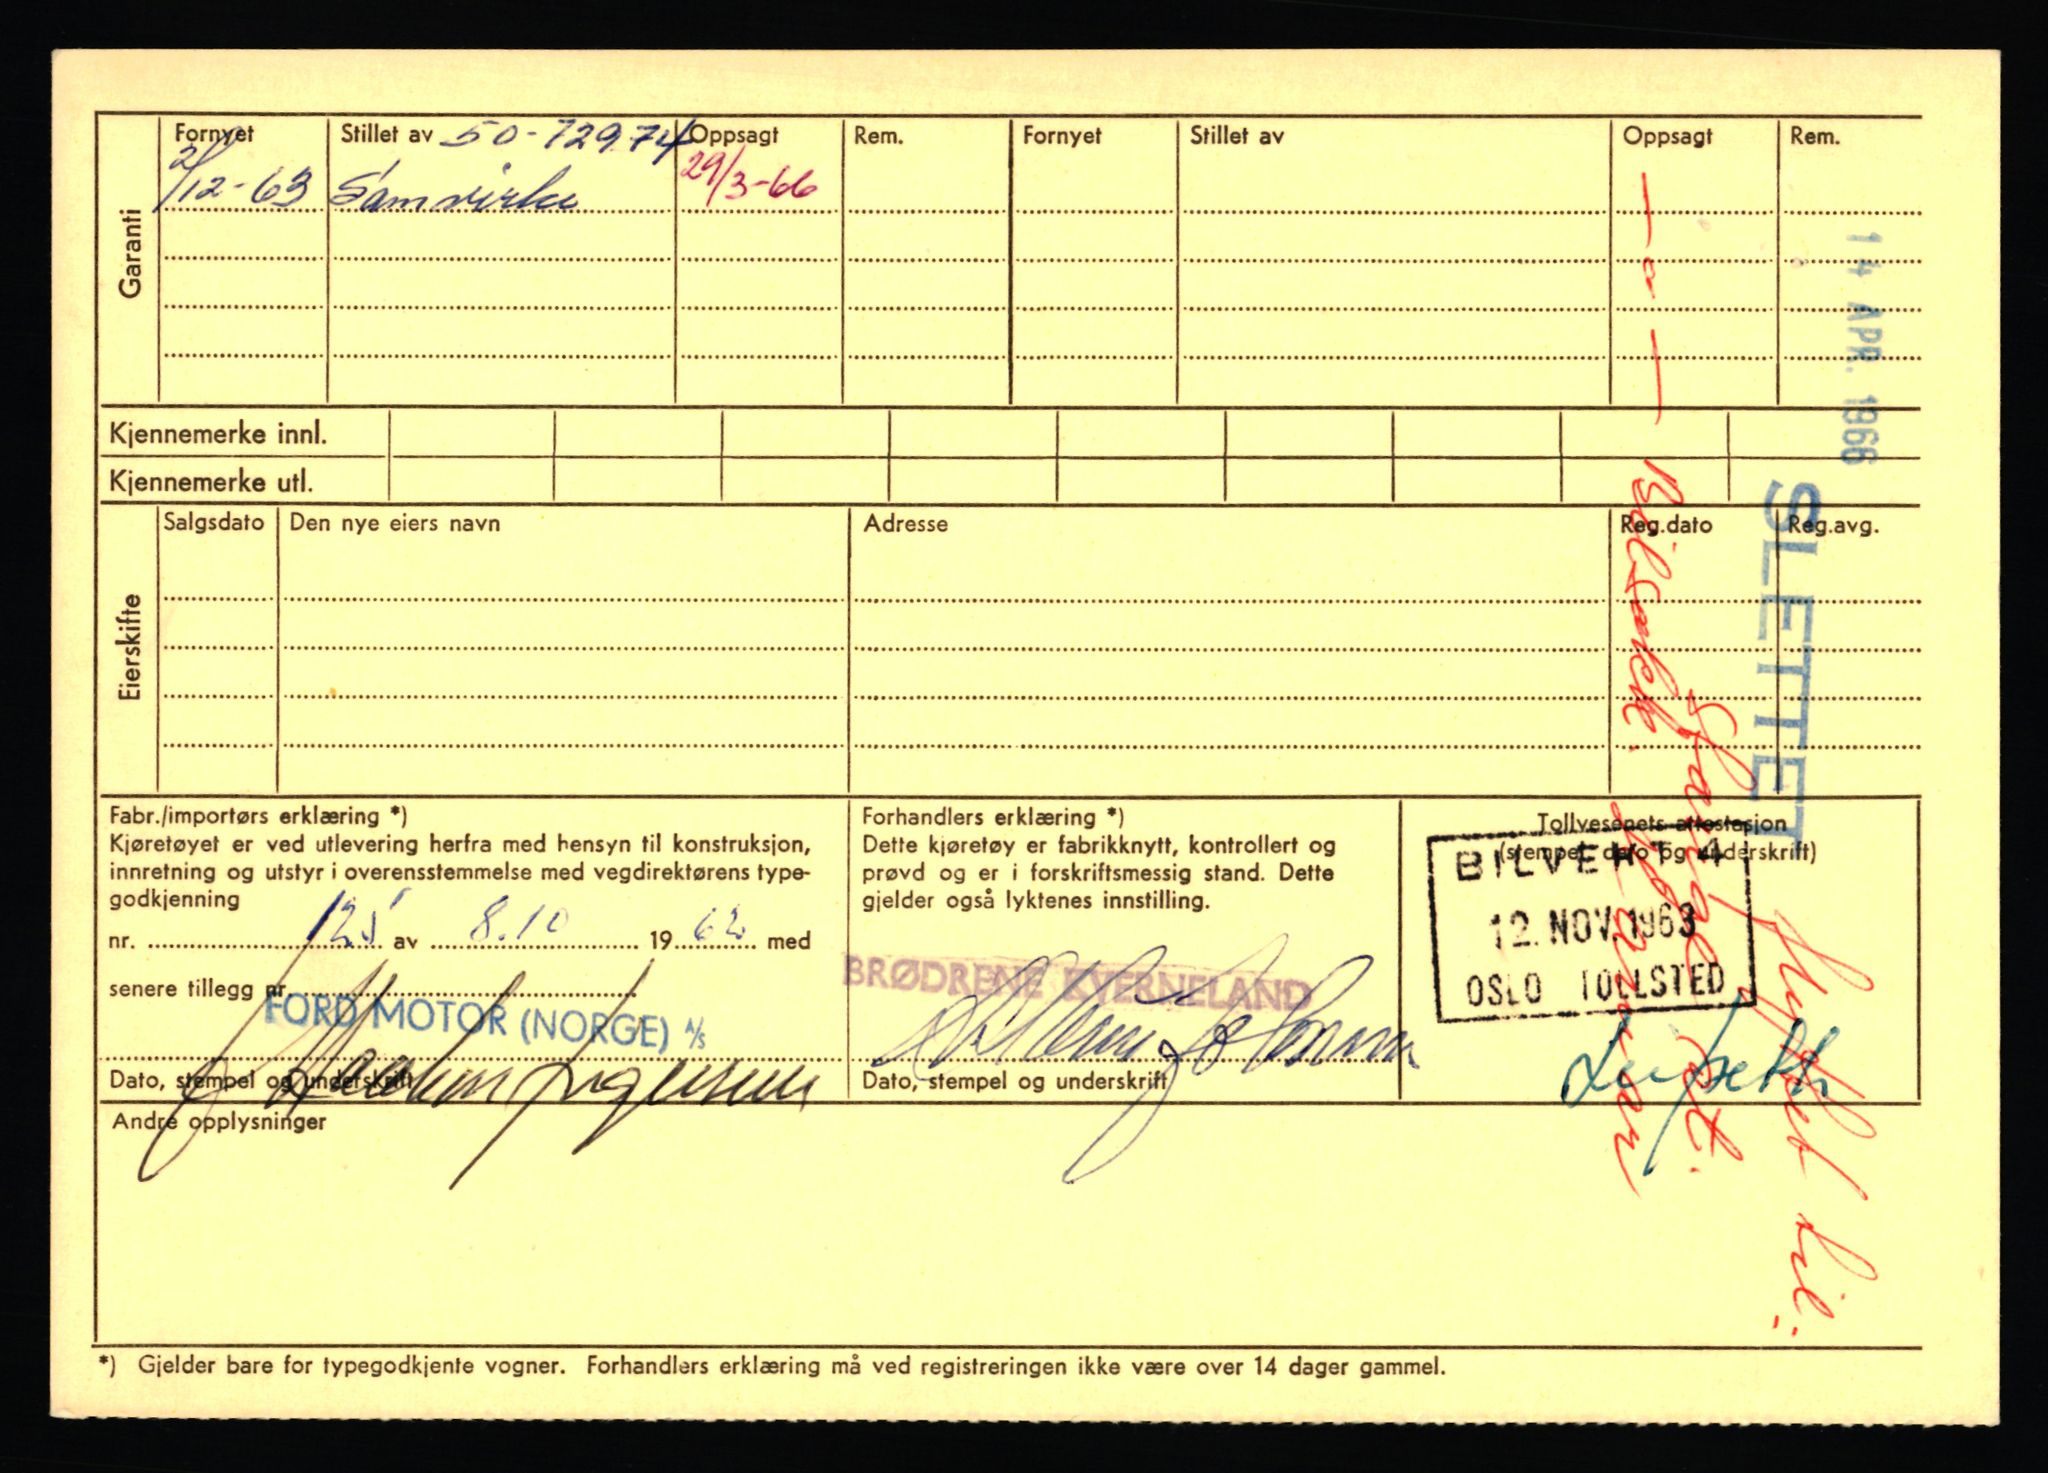 Fornyet Stillet av 50-72974 Oppsagt Rem. Fornyet Stillet av Oppsagt Rem.
2/12-63 Samvirke 29/3-66
Garanti
14 APR. 1966
Kjennemerke innl.
Kjennemerke utl.
SLETTET
Salgsdato Den nye eiers navn Adresse Reg.dato Reg.avg.
Eierskifte
Fabr./importørs erklæring *)
Kjøretøyet er ved utlevering herfra med hensyn til konstruksjon,
innretning og utstyr i overensstemmelse med vegdirektørens type-
godkjenning
nr. 125 av 8.10 1962 med
senere tillegg nr.
FORD MOTOR (NORGE) A/S
Dato, stempel og underskrift
Forhandlers erklæring *)
Dette kjøretøy er fabrikknytt, kontrollert og
prøvd og er i forskriftsmessig stand. Dette
gjelder også lyktenes innstilling.
BRØDRENE KVERNELAND
Dato, stempel og underskrift
Tollvesenets attestasjon
(stempel, dato og underskrift)
12. NOV. 1963
OSLO TOLLSTED
Andre opplysninger
til:
*) Gjelder bare for typegodkjente vogner. Forhandlers erklæring må ved registreringen ikke være over 14 dager gammel.